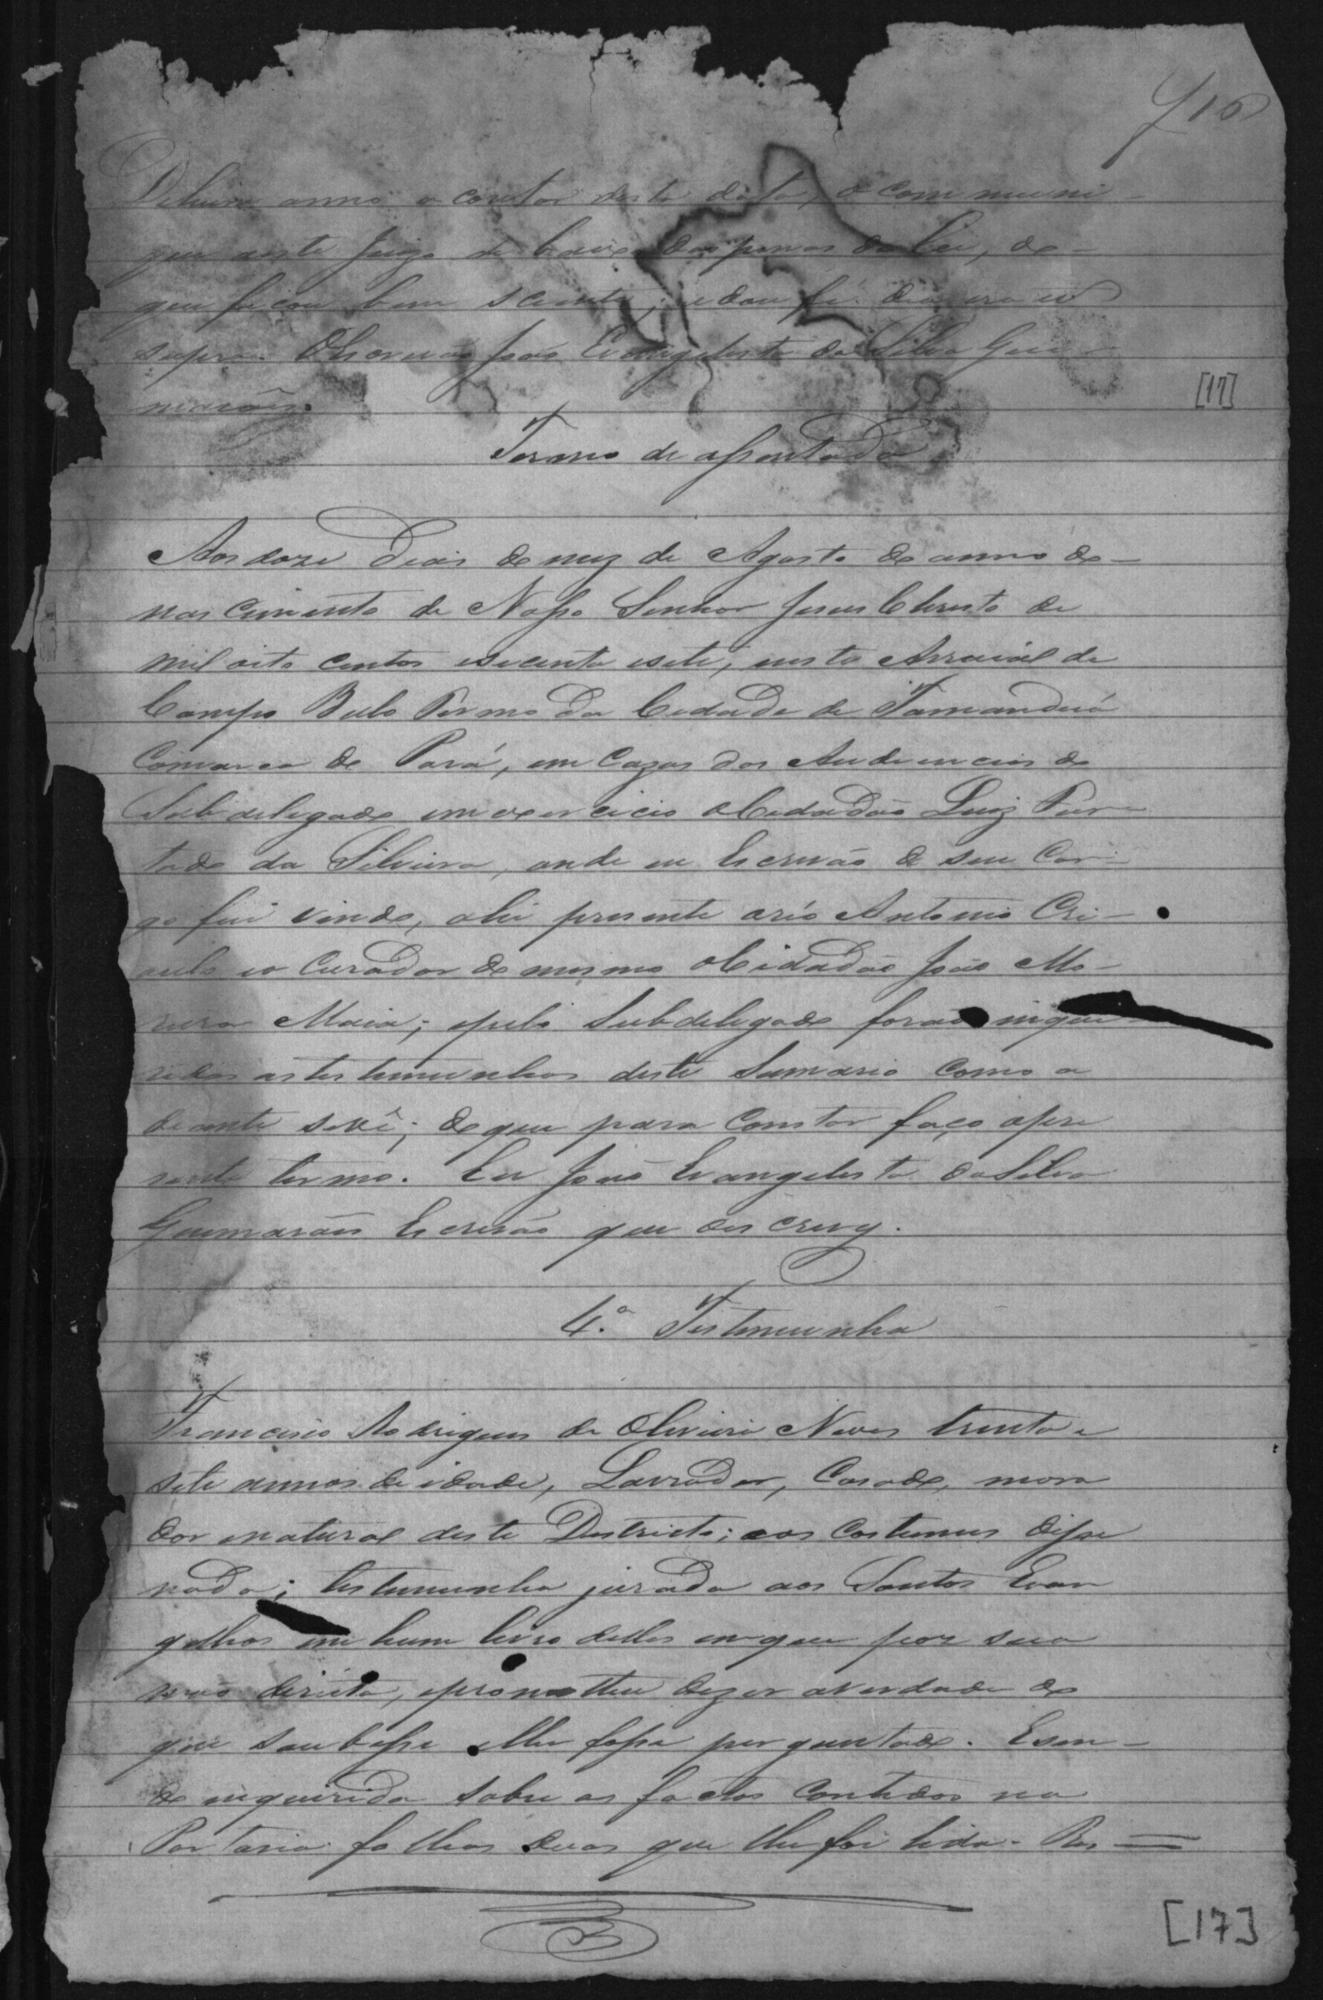 f 16
anno a contar desta data, o communi-
que a este Juizo de baixo das penas da Lei, do
que ficou bem sciente; e dou fé. Dia era ut
supra. O Escrivão João Evangelista da Silva Gui-
marães.
[17]
Termo de assentada
Aos doze dias do mez de Agosto do anno do-
nascimento de Nosso Senhor Jesus Christo de
mil oito centos e secenta e sete, nesta Arraial de
Campo Bello Termo da Cidade de Tamanduá
Comarca do Pará, em Cazas das Audiencias do
Subdelegado em exercicio o Cidadão Luiz Fur-
tado da Silveira, onde eu Escrivão de seu Car-
go fui vindo, ahi presente o réo Antonio Cri-
oulo e o Curador do mesmo o Cidadão João Mo-
reira Maia; e pelo Subdelegado forão inque
ridas as testemunhas deste Sumario como a
diante se vê; do que para constar faço o pre
sente termo. Eu João Evangelista da Silva
Guimarães Escrivão que o escrevy.
4.ª Testemunha
Francisco Rodrigues de Oliveira Neves trinta e
sete annos de idade, Lavrador, Casado, mora
dor e natural deste Destricto; aos costumes disse
nada; testemunha jurada aos Santos Evan
gelhos em hum livro delles em que poz sua
mão direita, e prometteu dizer a verdade do
que soubesse e lhe fosse perguntado. E sen-
do inquirida sobre os factos contidos na
Portaria folhas duas que lhe foi lida. Res=
[17]